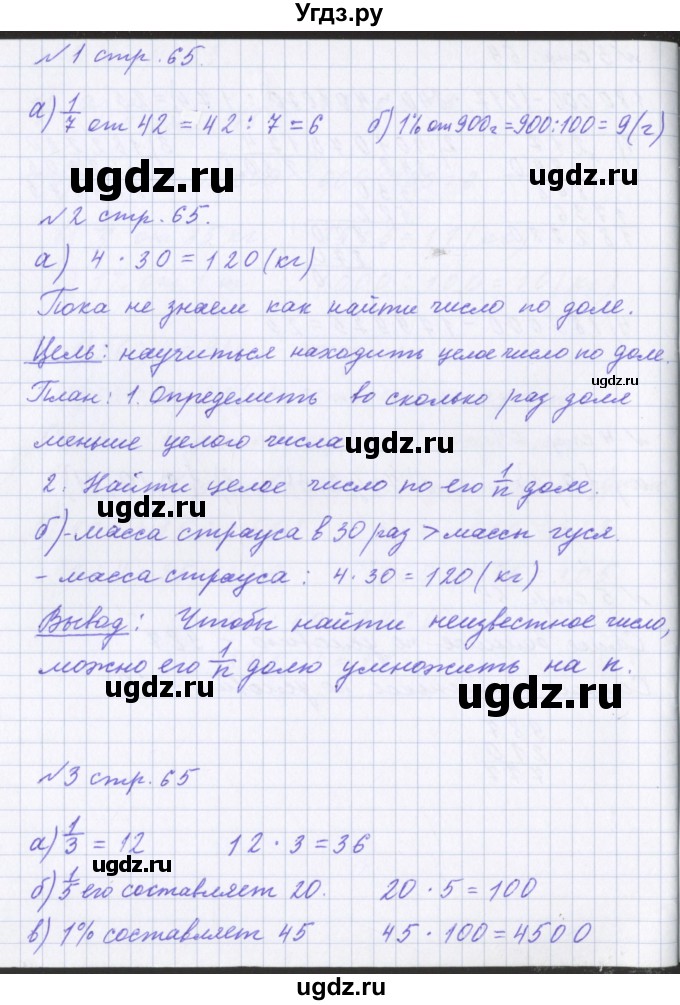 Угдз.ру
№1 стр. 65.
а) 1/7 от 42 = 42 : 7 = 6 б) 1% от 900г = 900:100 = 9(г)
ugdz.ru ugdz.ru
№2 стр. 65.
а) 4 · 30 = 120 (кг)
Пока не знаем как найти число по доле.
Цель: научиться находить целое число по доле.
ugdz.ru
План: 1. Определить во сколько раз доля
меньше целого числа
ugdz.ru
2. Найти целое число по его 1/n доле.
ugdz.ru
б) - масса страуса в 30 раз > массы гуся.
- масса страуса : 4 · 30 = 120 (кг)
Вывод: Чтобы найти неизвестное число,
можно его 1/n долю умножить на n.
ugdz.ru ugdz.ru
№3 стр. 65
а) 1/3 = 12 12 · 3 = 36
ugdz.ru
б) 1/5 его составляет 20. 20 · 5 = 100
в) 1% составляет 45 45 · 100 = 4500
ugdz.ru